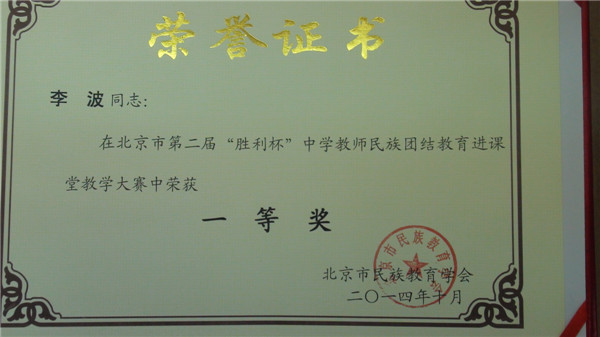 荣誉证书
李 波 同志:
在北京市第二届“胜利杯”中学教师民族团结教育进课
堂教学大赛中荣获
一 等 奖
北京市民族教育学会
二〇一四年十月